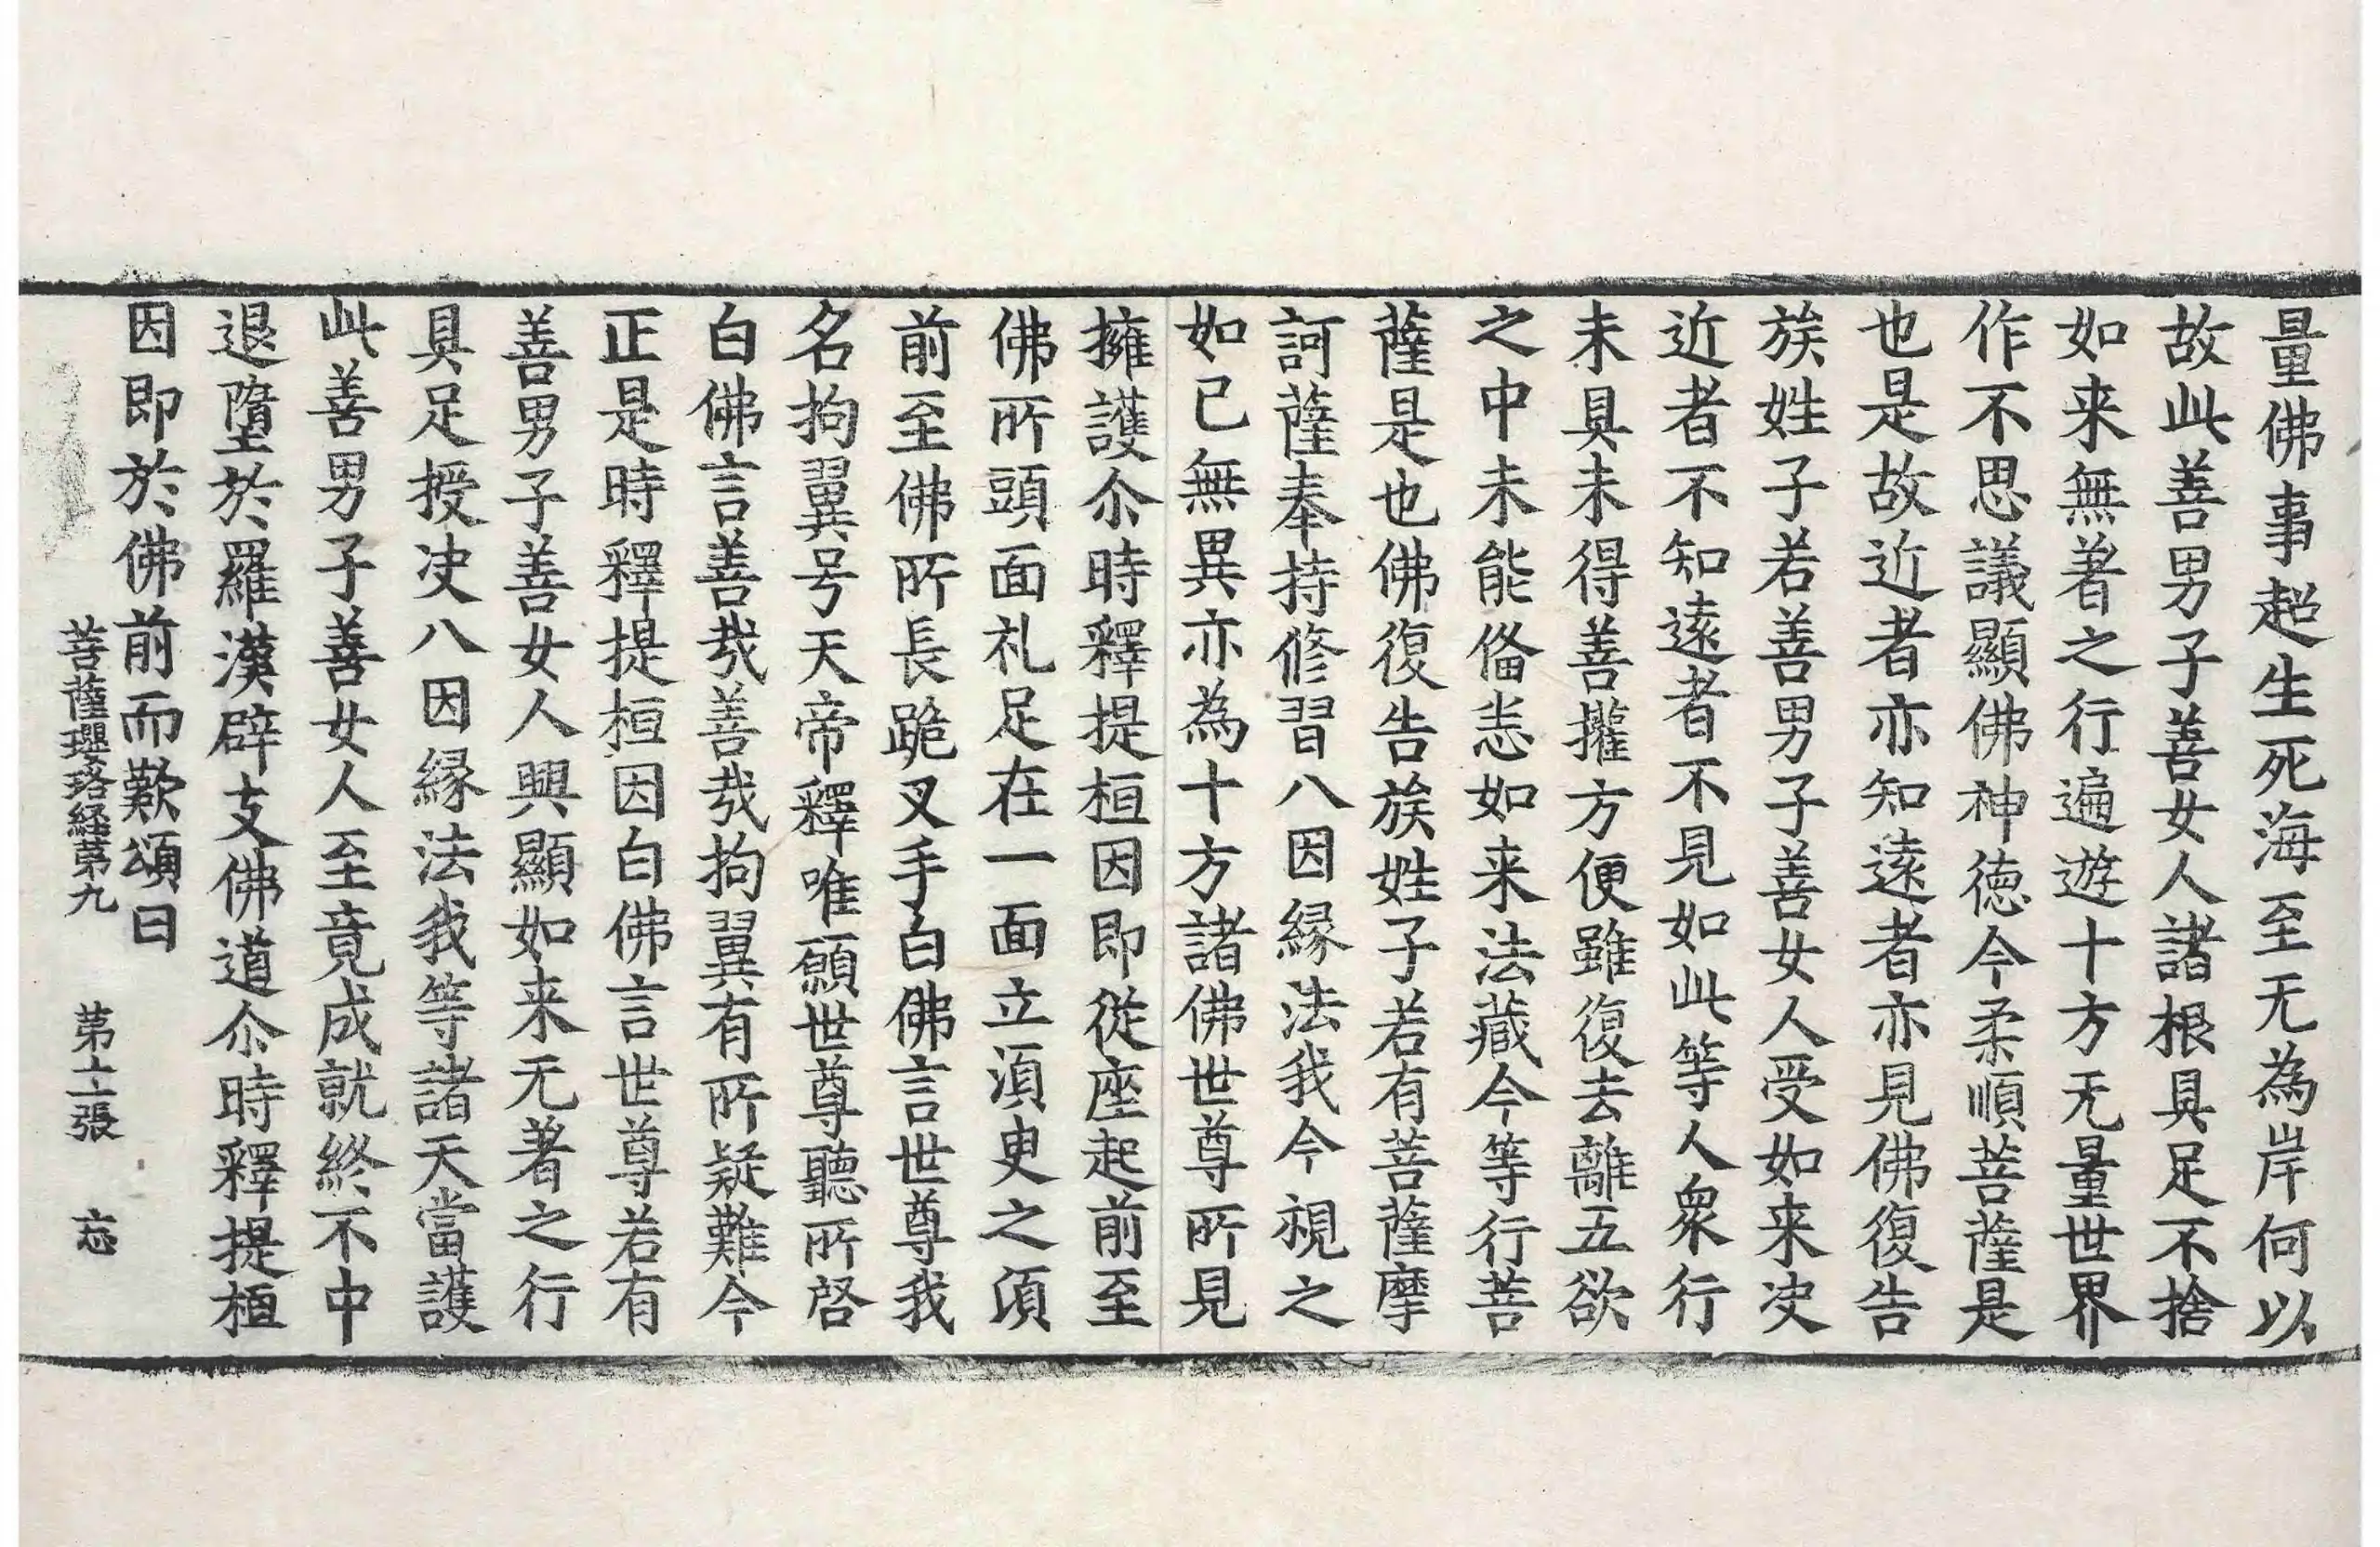 量佛事超生死海至无為岸何以
故此善男子善女人諸根具足不捨
如来無著之行遍遊十方无量世界
作不思議顯佛神徳今柔順菩薩是
也是故近者亦知遠者亦見佛復告
族姓子若善男子善女人受如来决
近者不知遠者不見如此等人衆行
未具未得善攉方便雖復去離五欲
之中未能俻恙如来法藏今等行菩
薩是也佛復告族姓子若有菩薩摩
訶薩奉持修習八因縁法我今視之
如已無異亦為十方諸佛世尊所見
擁護尒時釋提桓因即從座起前至
佛所頭面礼足在一面立湏臾之湏
前至佛所長跪叉手白佛言世尊我
名拘翼号天帝釋唯願世尊聽所啓
白佛言善哉善哉拘翼有所疑難今
正是時釋提桓因白佛言世尊若有
善男子善女人興顯如来无著之行
具足授决八因縁法我等諸天當護
此善男子善女人至竟成就終不中
退墮於羅漢辟支佛道尒時釋提桓
因即於佛前而歎頌曰
菩薩瓔珞経苐九 苐十二張 忘